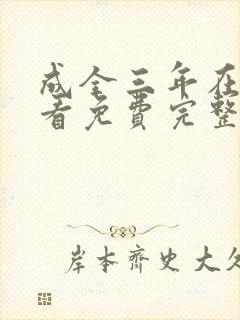 成全三年在
看免费完整
岸本齐史大久